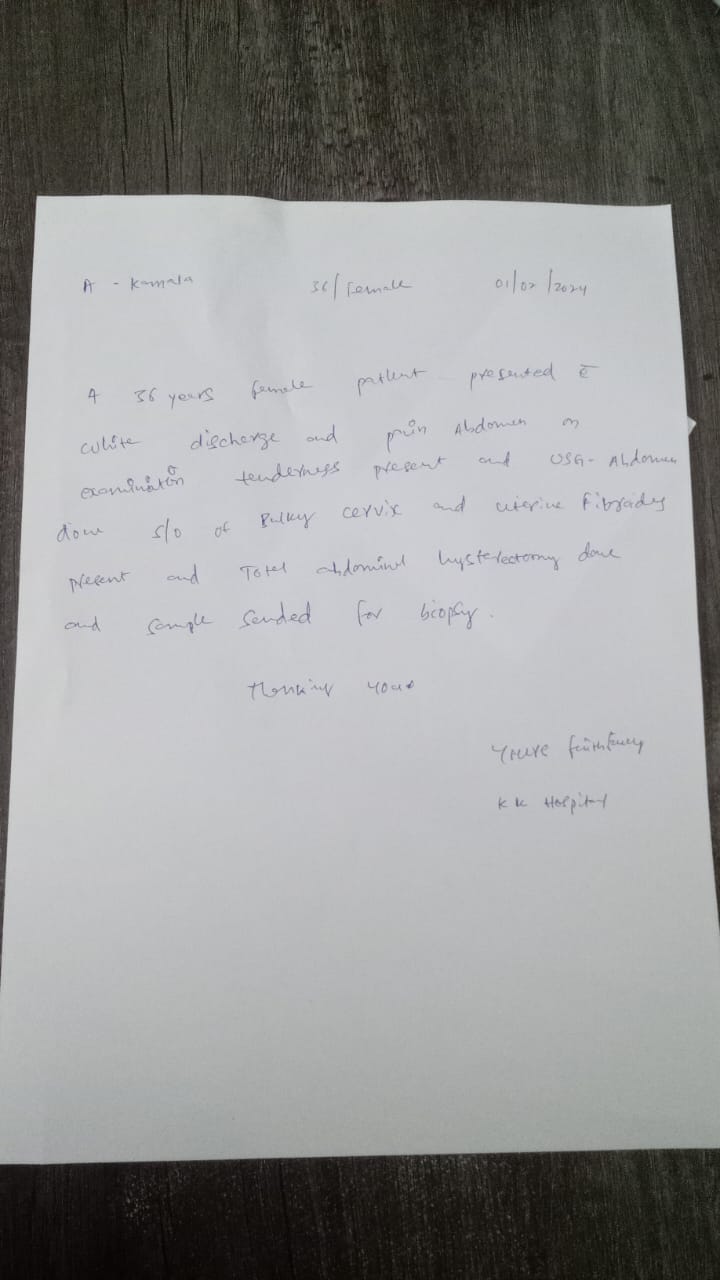 A - Kamala 36/Female 01/02/2024
A 36 years female patient presented c̄
white discharge and pain Abdomen on
examination tenderness present and USG- Abdomen
done s/o of Bulky cervix and uterine Fibroids
present and Total abdominal hysterectomy done
and sample sended for biopsy.
Thanking you
Yours faithfully
KK Hospital